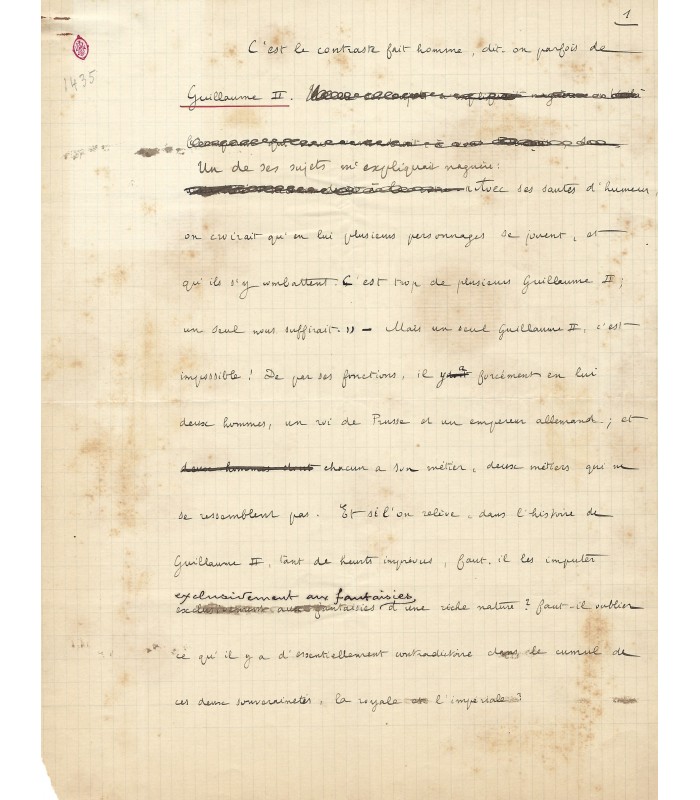 1
1435
C'est le contraste fait homme, dit-on parfois de
Guillaume II.
Un de ses sujets m'expliquait naguère :
« Avec ses sautes d'humeur,
on croirait qu'en lui plusieurs personnages se jouent, et
qu'ils s'y combattent. C'est trop de plusieurs Guillaume II ;
un seul nous suffirait. » – Mais un seul Guillaume II, c'est
impossible ! De par ses fonctions, il y a forcément en lui
deux hommes, un roi de Prusse et un empereur allemand ; et
deux hommes dont chacun a son métier, deux métiers qui ne
se ressemblent pas. Et si l'on relève, dans l'histoire de
Guillaume II, tant de heurts imprévus, faut-il les imputer
exclusivement aux fantaisies
exclusivement aux fantaisies d'une riche nature ? faut-il oublier
ce qu'il y a d'essentiellement contradictoire dans le cumul de
ces deux souverainetés, la royale et l'impériale ?